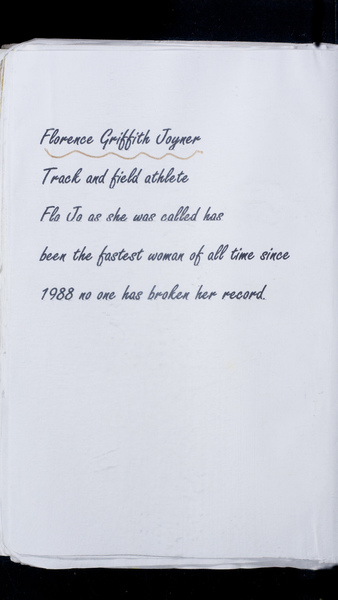 Florence Griffith Joyner
Track and field athlete
Flo Jo as she was called has
been the fastest woman of all time since
1988 no one has broken her record.